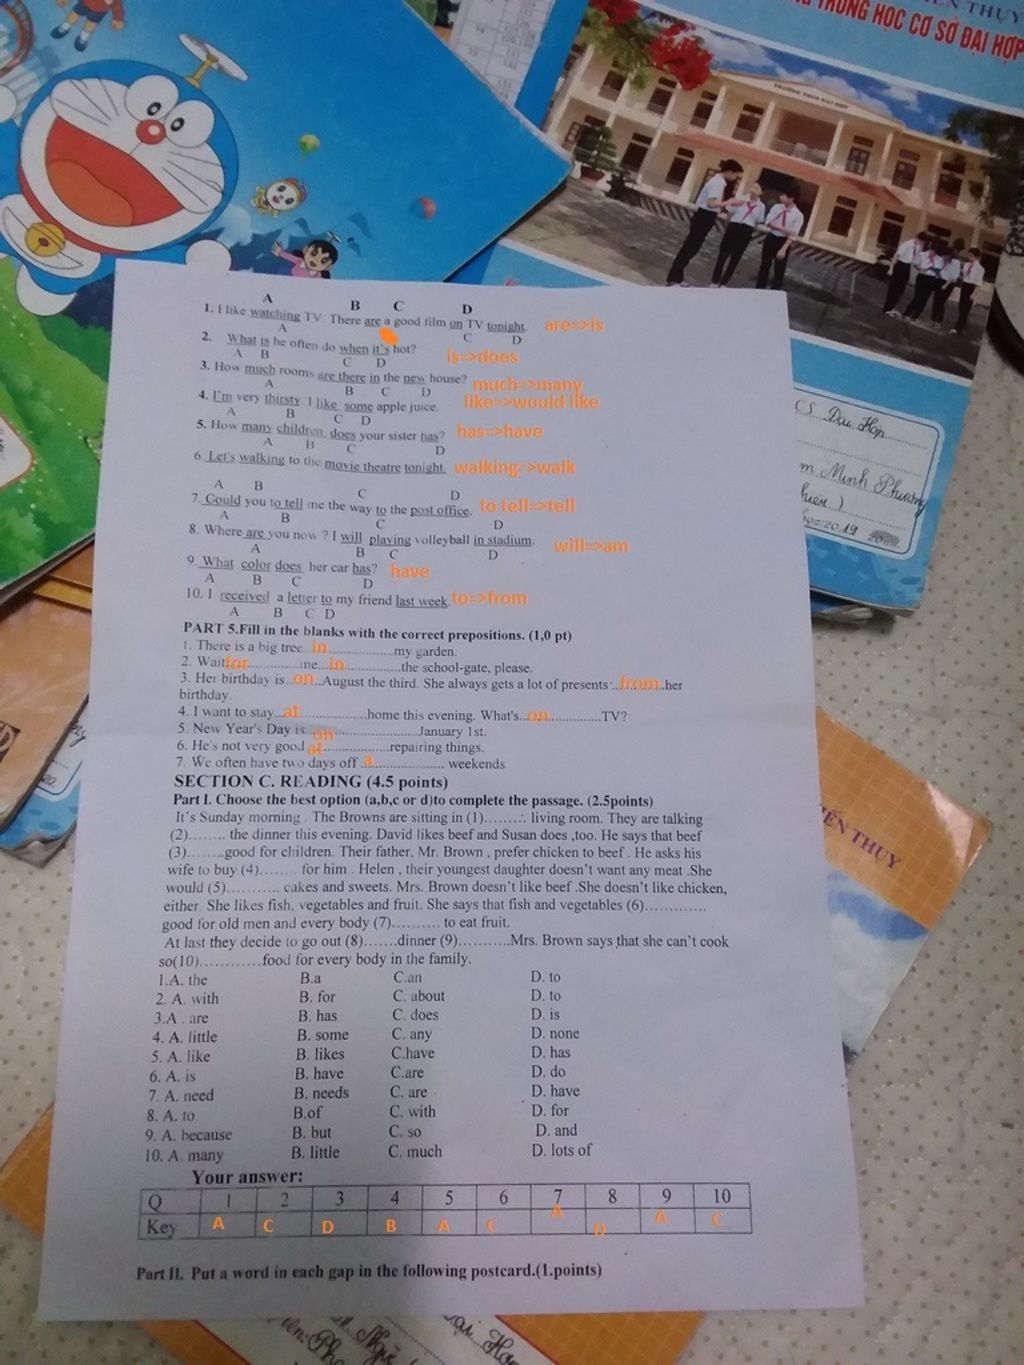 IÊN THỤY
TRUNG HỌC CƠ SỞ ĐẠI HỢP
CS Đại Hợp
m Minh Phương
A B C D
1. I like watching TV. There are a good film on TV tonight. are=>is
A C D
2. What is he often do when it's hot? is=>does
A B C D
3. How much rooms are there in the new house? much=>many
A B C D
4. I'm very thirsty. I like some apple juice. like=>would like
A B C D
5. How many children does your sister has? has=>have
A B C D
6. Let's walking to the movie theatre tonight. walking=>walk
A B C D
7. Could you to tell me the way to the post office. to tell=>tell
A B C D
8. Where are you now ? I will playing volleyball in stadium. will=>am
A B C D
9. What color does her car has? have
A B C D
10. I received a letter to my friend last week. to=>from
A B C D
PART 5.Fill in the blanks with the correct prepositions. (1,0 pt)
1. There is a big tree..in..................my garden.
2. Wait for..............me...in..............the school-gate, please.
3. Her birthday is..on..August the third. She always gets a lot of presents ..from..her
birthday.
4. I want to stay..at..................home this evening. What's..on...............TV?
5. New Year's Day is..on......................January 1st.
6. He's not very good at..................repairing things.
7. We often have two days off .a.................. weekends
SECTION C. READING (4.5 points)
Part I. Choose the best option (a,b,c or d)to complete the passage. (2.5points)
It's Sunday morning . The Browns are sitting in (1)......... living room. They are talking
(2)........ the dinner this evening. David likes beef and Susan does ,too. He says that beef
(3)........good for children. Their father, Mr. Brown , prefer chicken to beef . He asks his
wife to buy (4)........ for him . Helen , their youngest daughter doesn't want any meat .She
would (5)........... cakes and sweets. Mrs. Brown doesn't like beef .She doesn't like chicken,
either. She likes fish, vegetables and fruit. She says that fish and vegetables (6).............
good for old men and every body (7).......... to eat fruit.
At last they decide to go out (8).......dinner (9)...........Mrs. Brown says that she can't cook
so(10).............food for every body in the family.
1.A. the B.a C.an D. to
2. A. with B. for C. about D. to
3.A . are B. has C. does D. is
4. A. little B. some C. any D. none
5. A. like B. likes C.have D. has
6. A. is B. have C.are D. do
7. A. need B. needs C. are D. have
8. A. to B.of C. with D. for
9. A. because B. but C. so D. and
10. A. many B. little C. much D. lots of
Your answer:
Q 1 2 3 4 5 6 7 8 9 10
Key A C D B A C A D A C
Part II. Put a word in each gap in the following postcard.(1.points)
IẾN THỤY